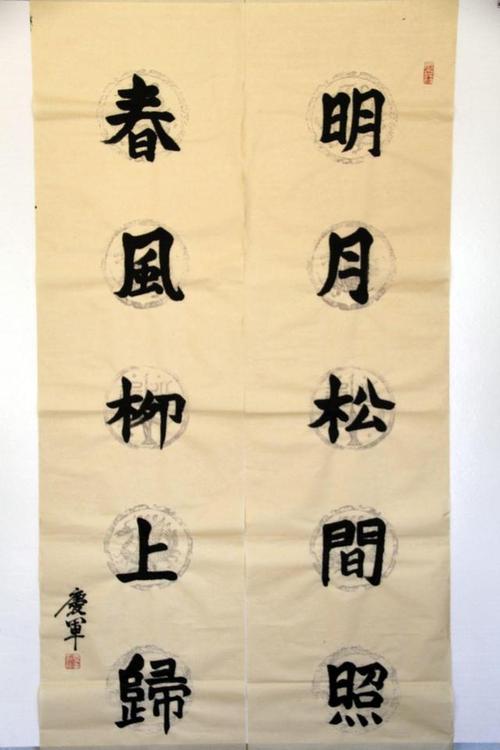 明月松間照
春風柳上歸
慶軍